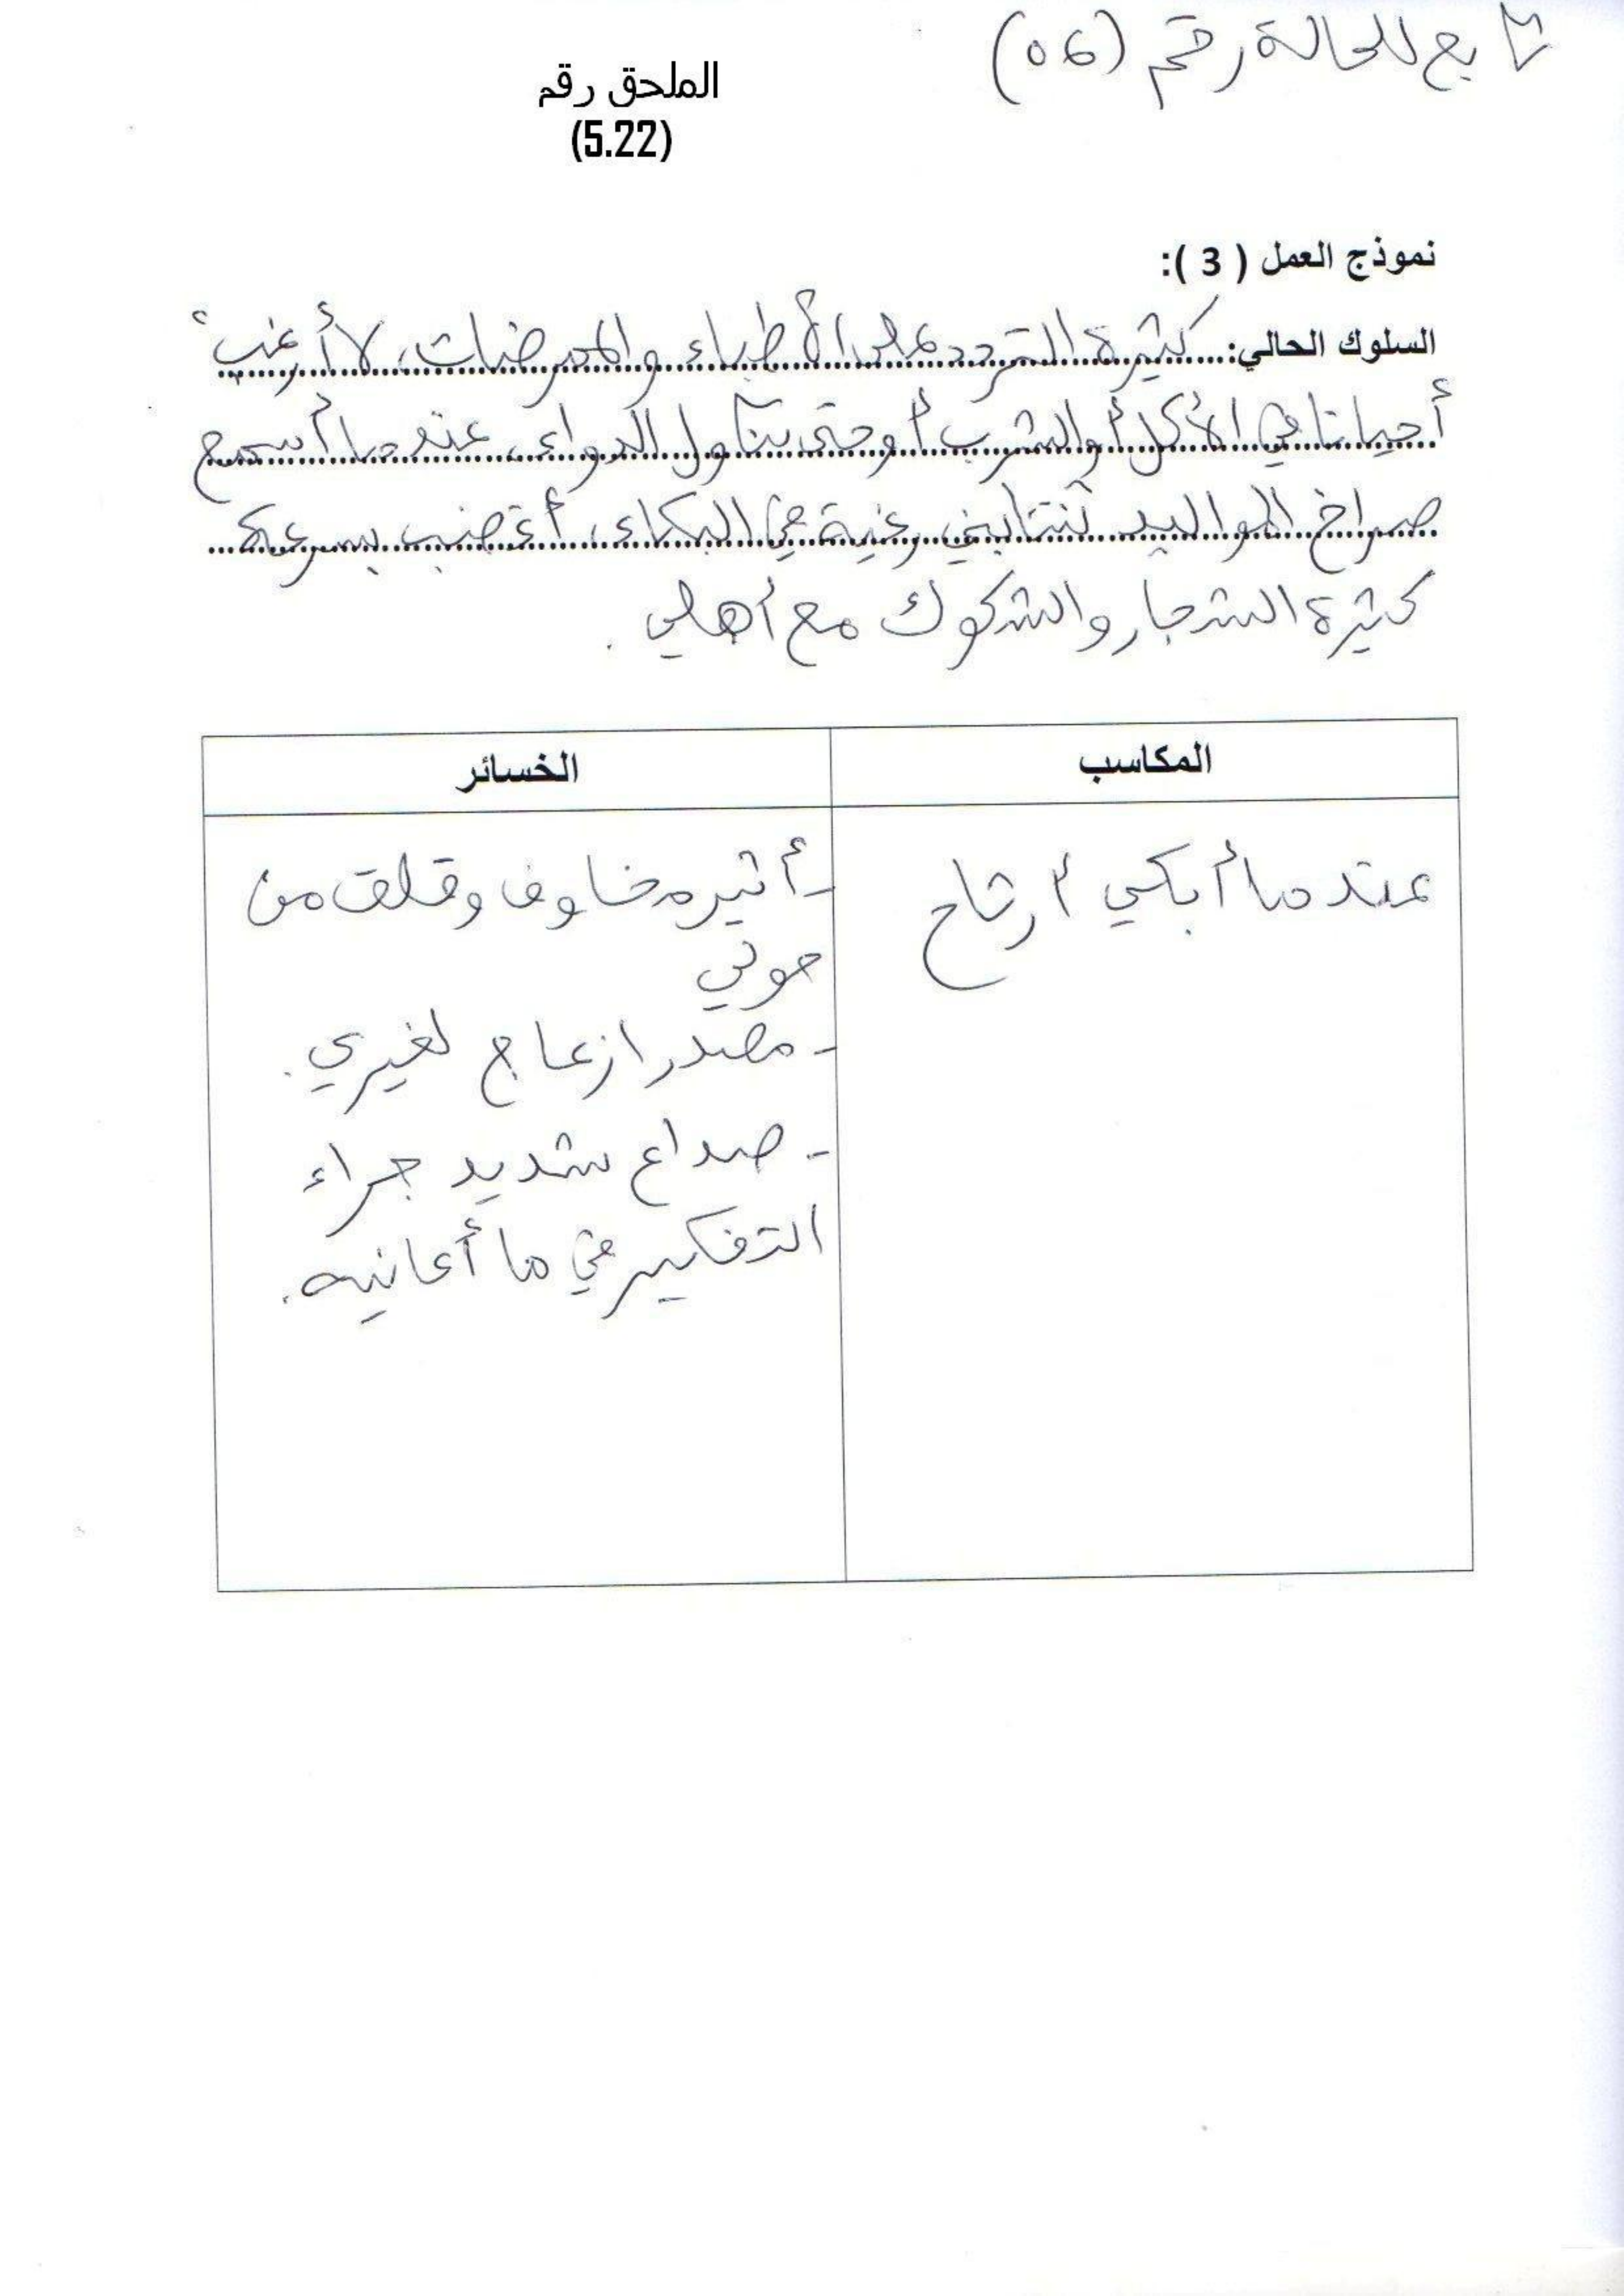 تابع للحالة رقم (06)
الملحق رقم
(5.22)
نموذج العمل ( 3 ):
السلوك الحالي: كثيرة التردد على الأطباء والممرضات، لا أرغب
أحيانا في الأكل أو الشرب أو حتى تناول الدواء، عندما أسمع
صراخ المواليد تنتابني رغبة في البكاء، أغضب بسرعة
كثيرة الشجار والشكوك مع أهلي.
المكاسب
الخسائر
عندما أبكي أرتاح
- أثير مخاوف وقلق من
حولي
- مصدر ازعاج لغيري.
- صداع شديد جراء
التفكير في ما أعانيه.